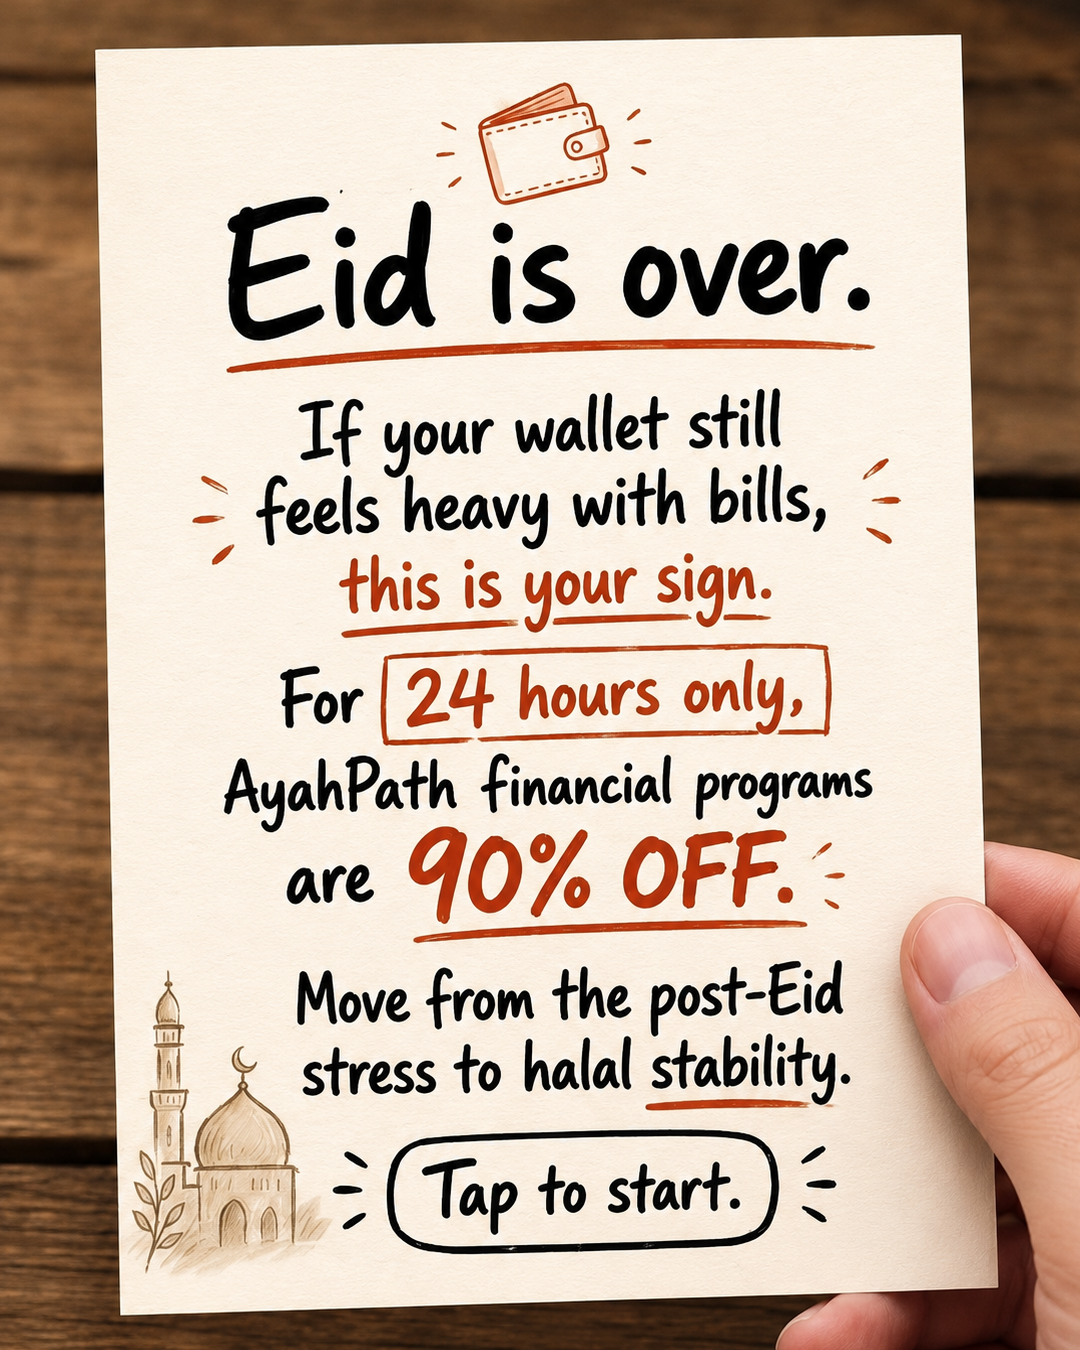 Eid is over.
If your wallet still
feels heavy with bills,
this is your sign.
For 24 hours only,
AyahPath financial programs
are 90% OFF.
Move from the post-Eid
stress to halal stability.
Tap to start.